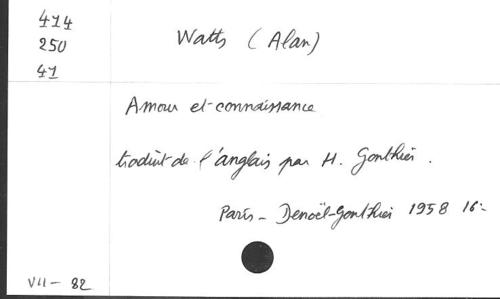 414
250
41
Watts (Alan)
Amour et connaissance
traduit de l'anglais par H. Gonthier.
Paris - Denoël-Gonthier 1958 16:
VII - 82